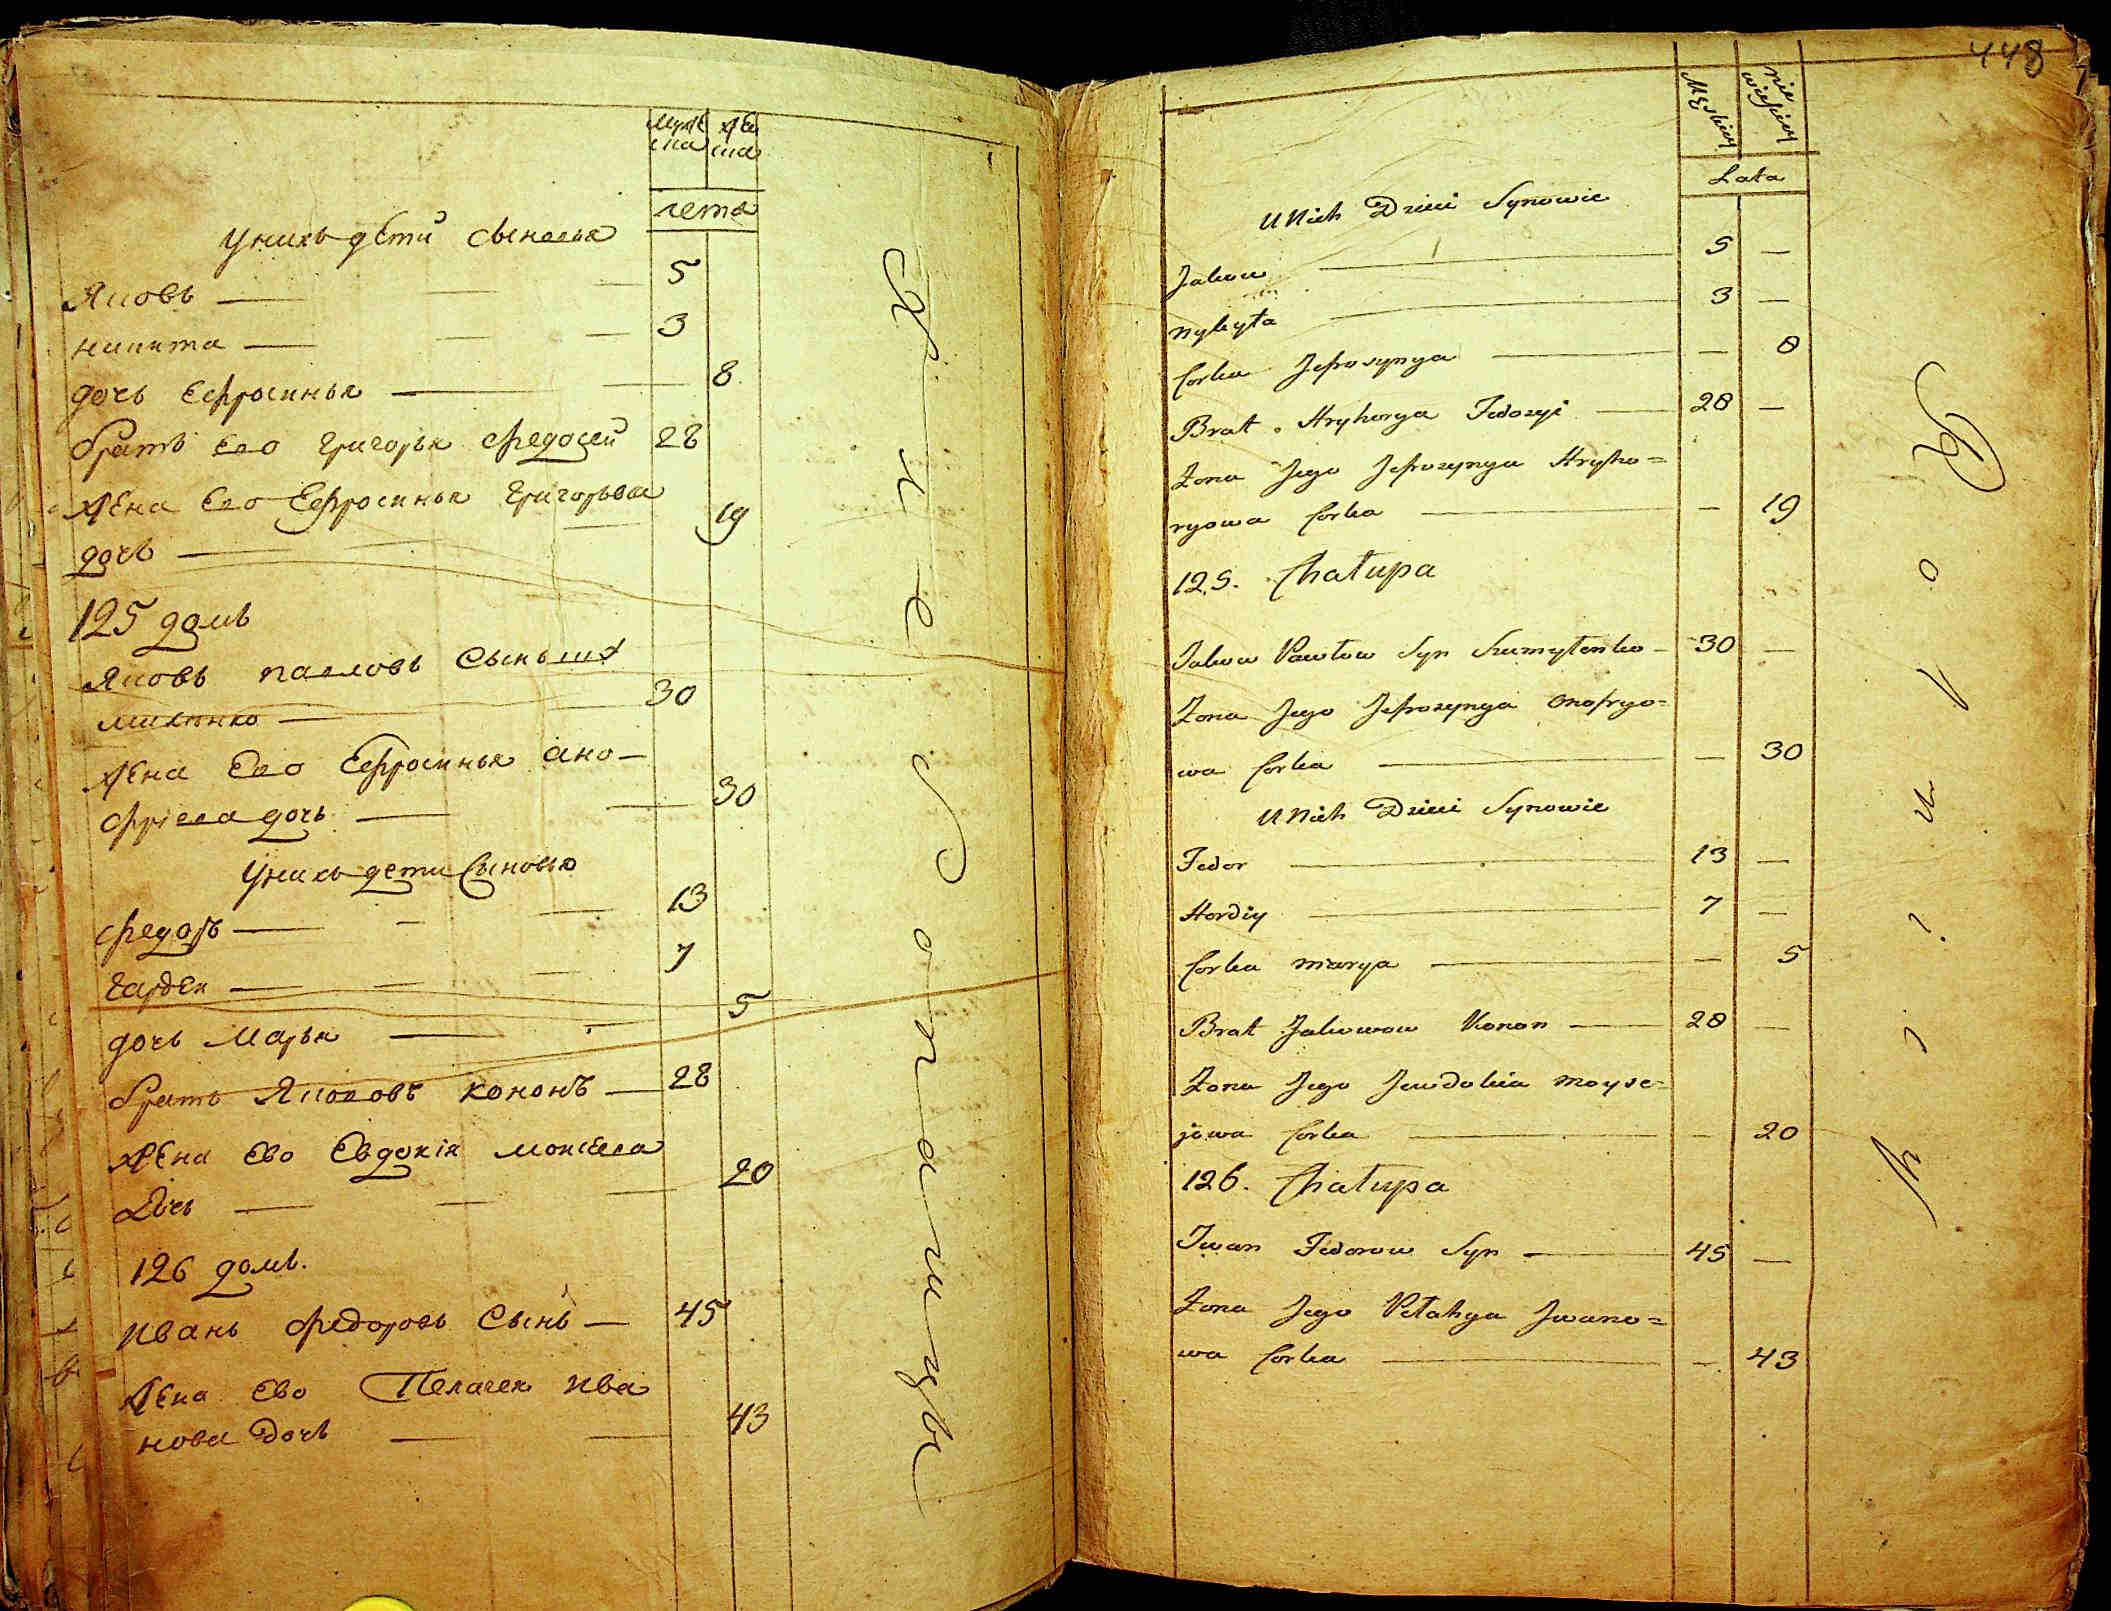 мужеска женска
лета
У нихъ дети сыновья
Яковъ — — — 5
никита — — — 3
дочь Ефросинья — — 8
братъ Ево григорья федосей 28
жена Ево Ефросинья григорьева
дочь — — — 19
125 домъ
Яковъ павловъ Сынъ шу
митенко — — 30
жена Ево Ефросинья ано-
фріева дочь — — 30
У нихъ дети Сыновья
федоръ — — — 13
гардеи — — — 7
дочь Марья — — 5
братъ Яковovъ кононъ — 28
жена Ево Евдокія моисеева
Дочь — — — 20
126 домъ.
иванъ федоровъ Сынъ — 45
жена Ево Пелагея ива
нова Дочь — — 43
448
Męskiey niewieskiey
Lata
U Nich Dzieci Synowie
Jakow — 5 —
Nykyta — 3 —
Corka Jefrosynya — — 8
Brat Hryhorya Fedosyi — 28 —
Zona Jego Jefrosynya Hryho=
ryowa Corka — — 19
125. Chałupa
Jakow Pawłow Syn Szumytenko - 30 —
Zona Jego Jefrosynya Onofryo=
wa Corka — — 30
U Nich Dzieci Synowie
Fedor — 13 —
Hordiy — 7 —
Corka Marya — — 5
Brat Jakowow Konon — 28 —
Zona Jego Jewdokia Moyse-
jowa Corka — — 20
126. Chałupa
Iwan Fedorow Syn — 45 —
Zona Jego Pełahya Iwano=
wa Corka — — 43